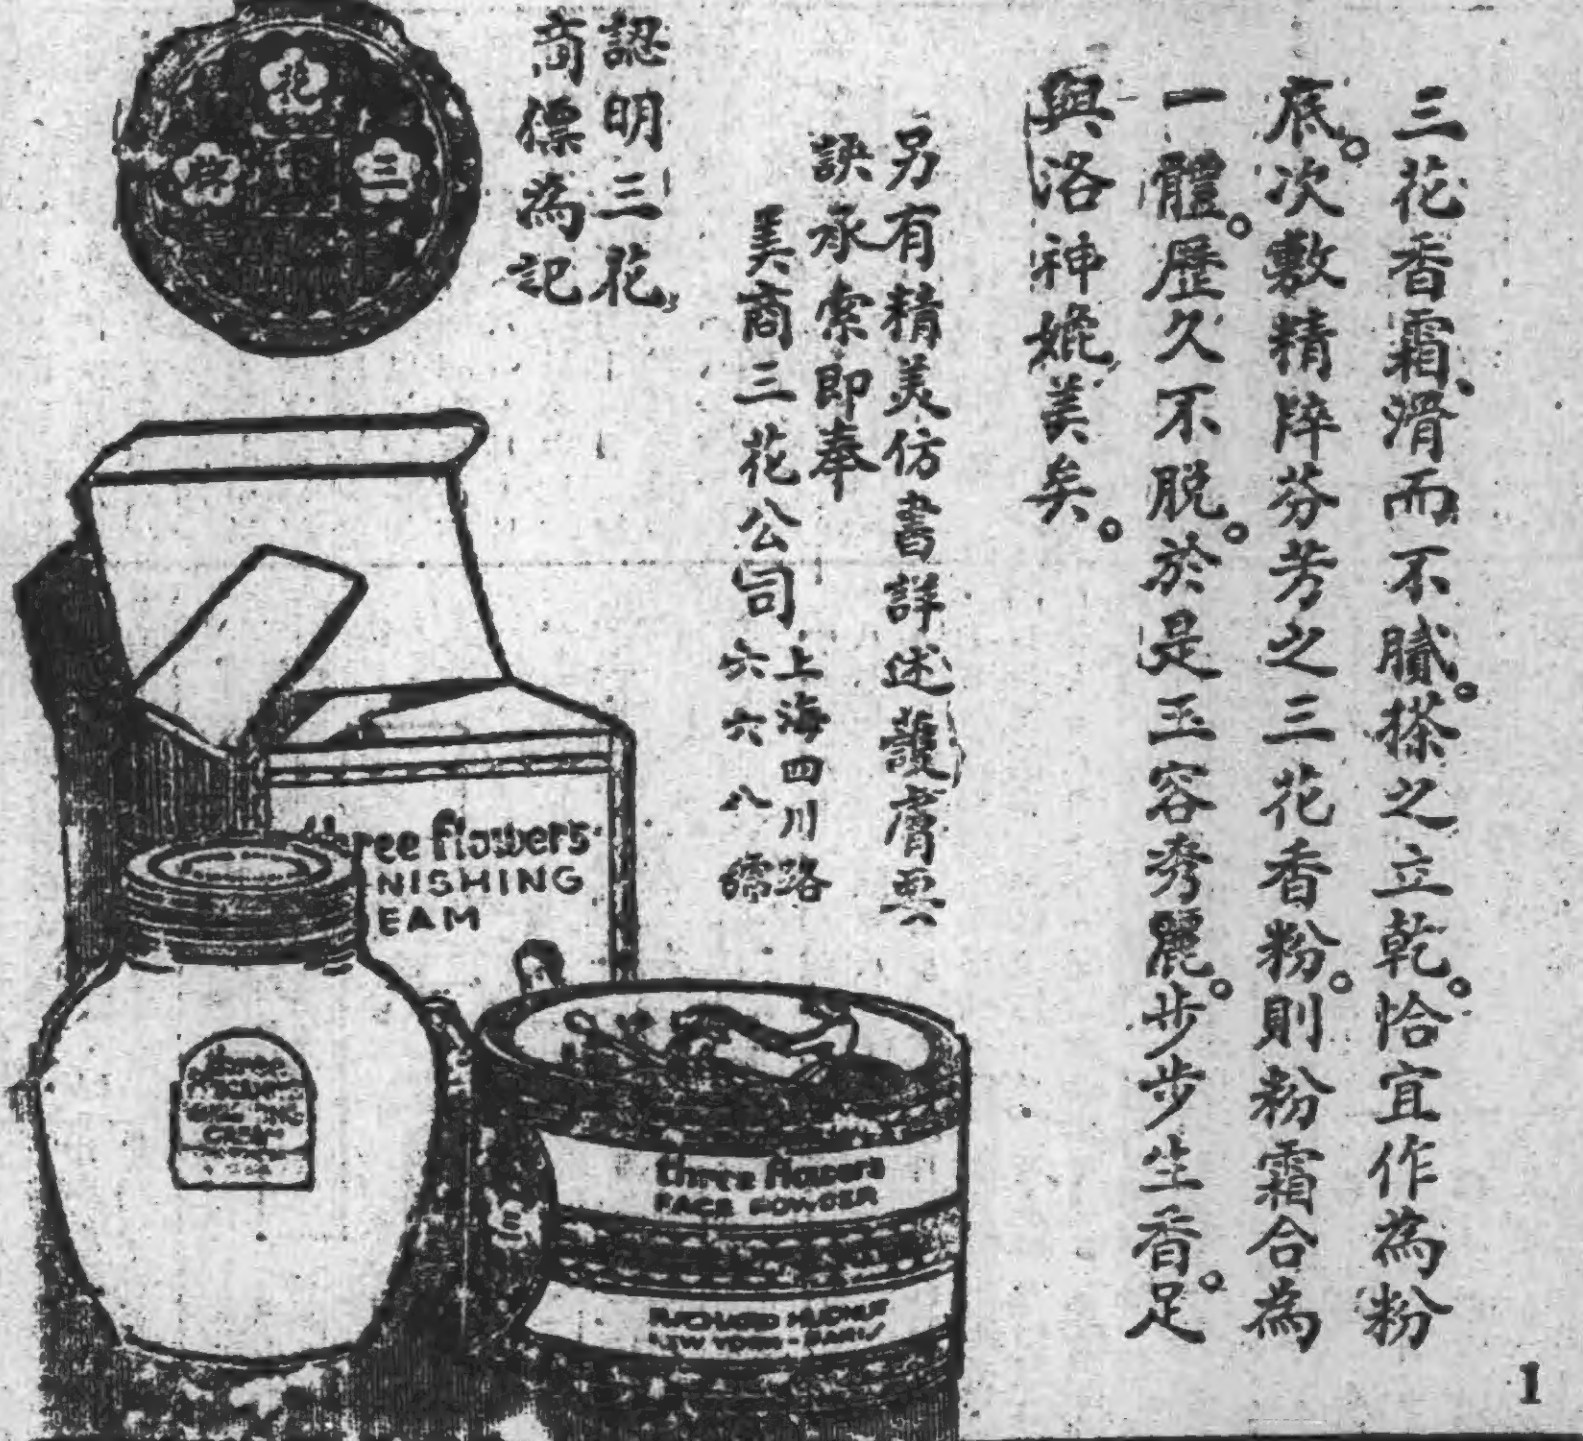 三花香霜、滑而不膩。搽之立乾。恰宜作為粉
底。次敷精陎芬芳之三花香粉。則粉霜合為
一體。歷久不脫。於是玉容秀麗。步步生香。足
與洛神媲美矣。
另有精美仿書詳述護膚要
訣承索即奉
美商三花公司
上海四川路
六六八號
認明三花
商標為記
花
三
牌
three flowers
NISHING
EAM
three flowers
FACE POWDER
RICHARD HUDNUT
NEW YORK - PARIS
三
1